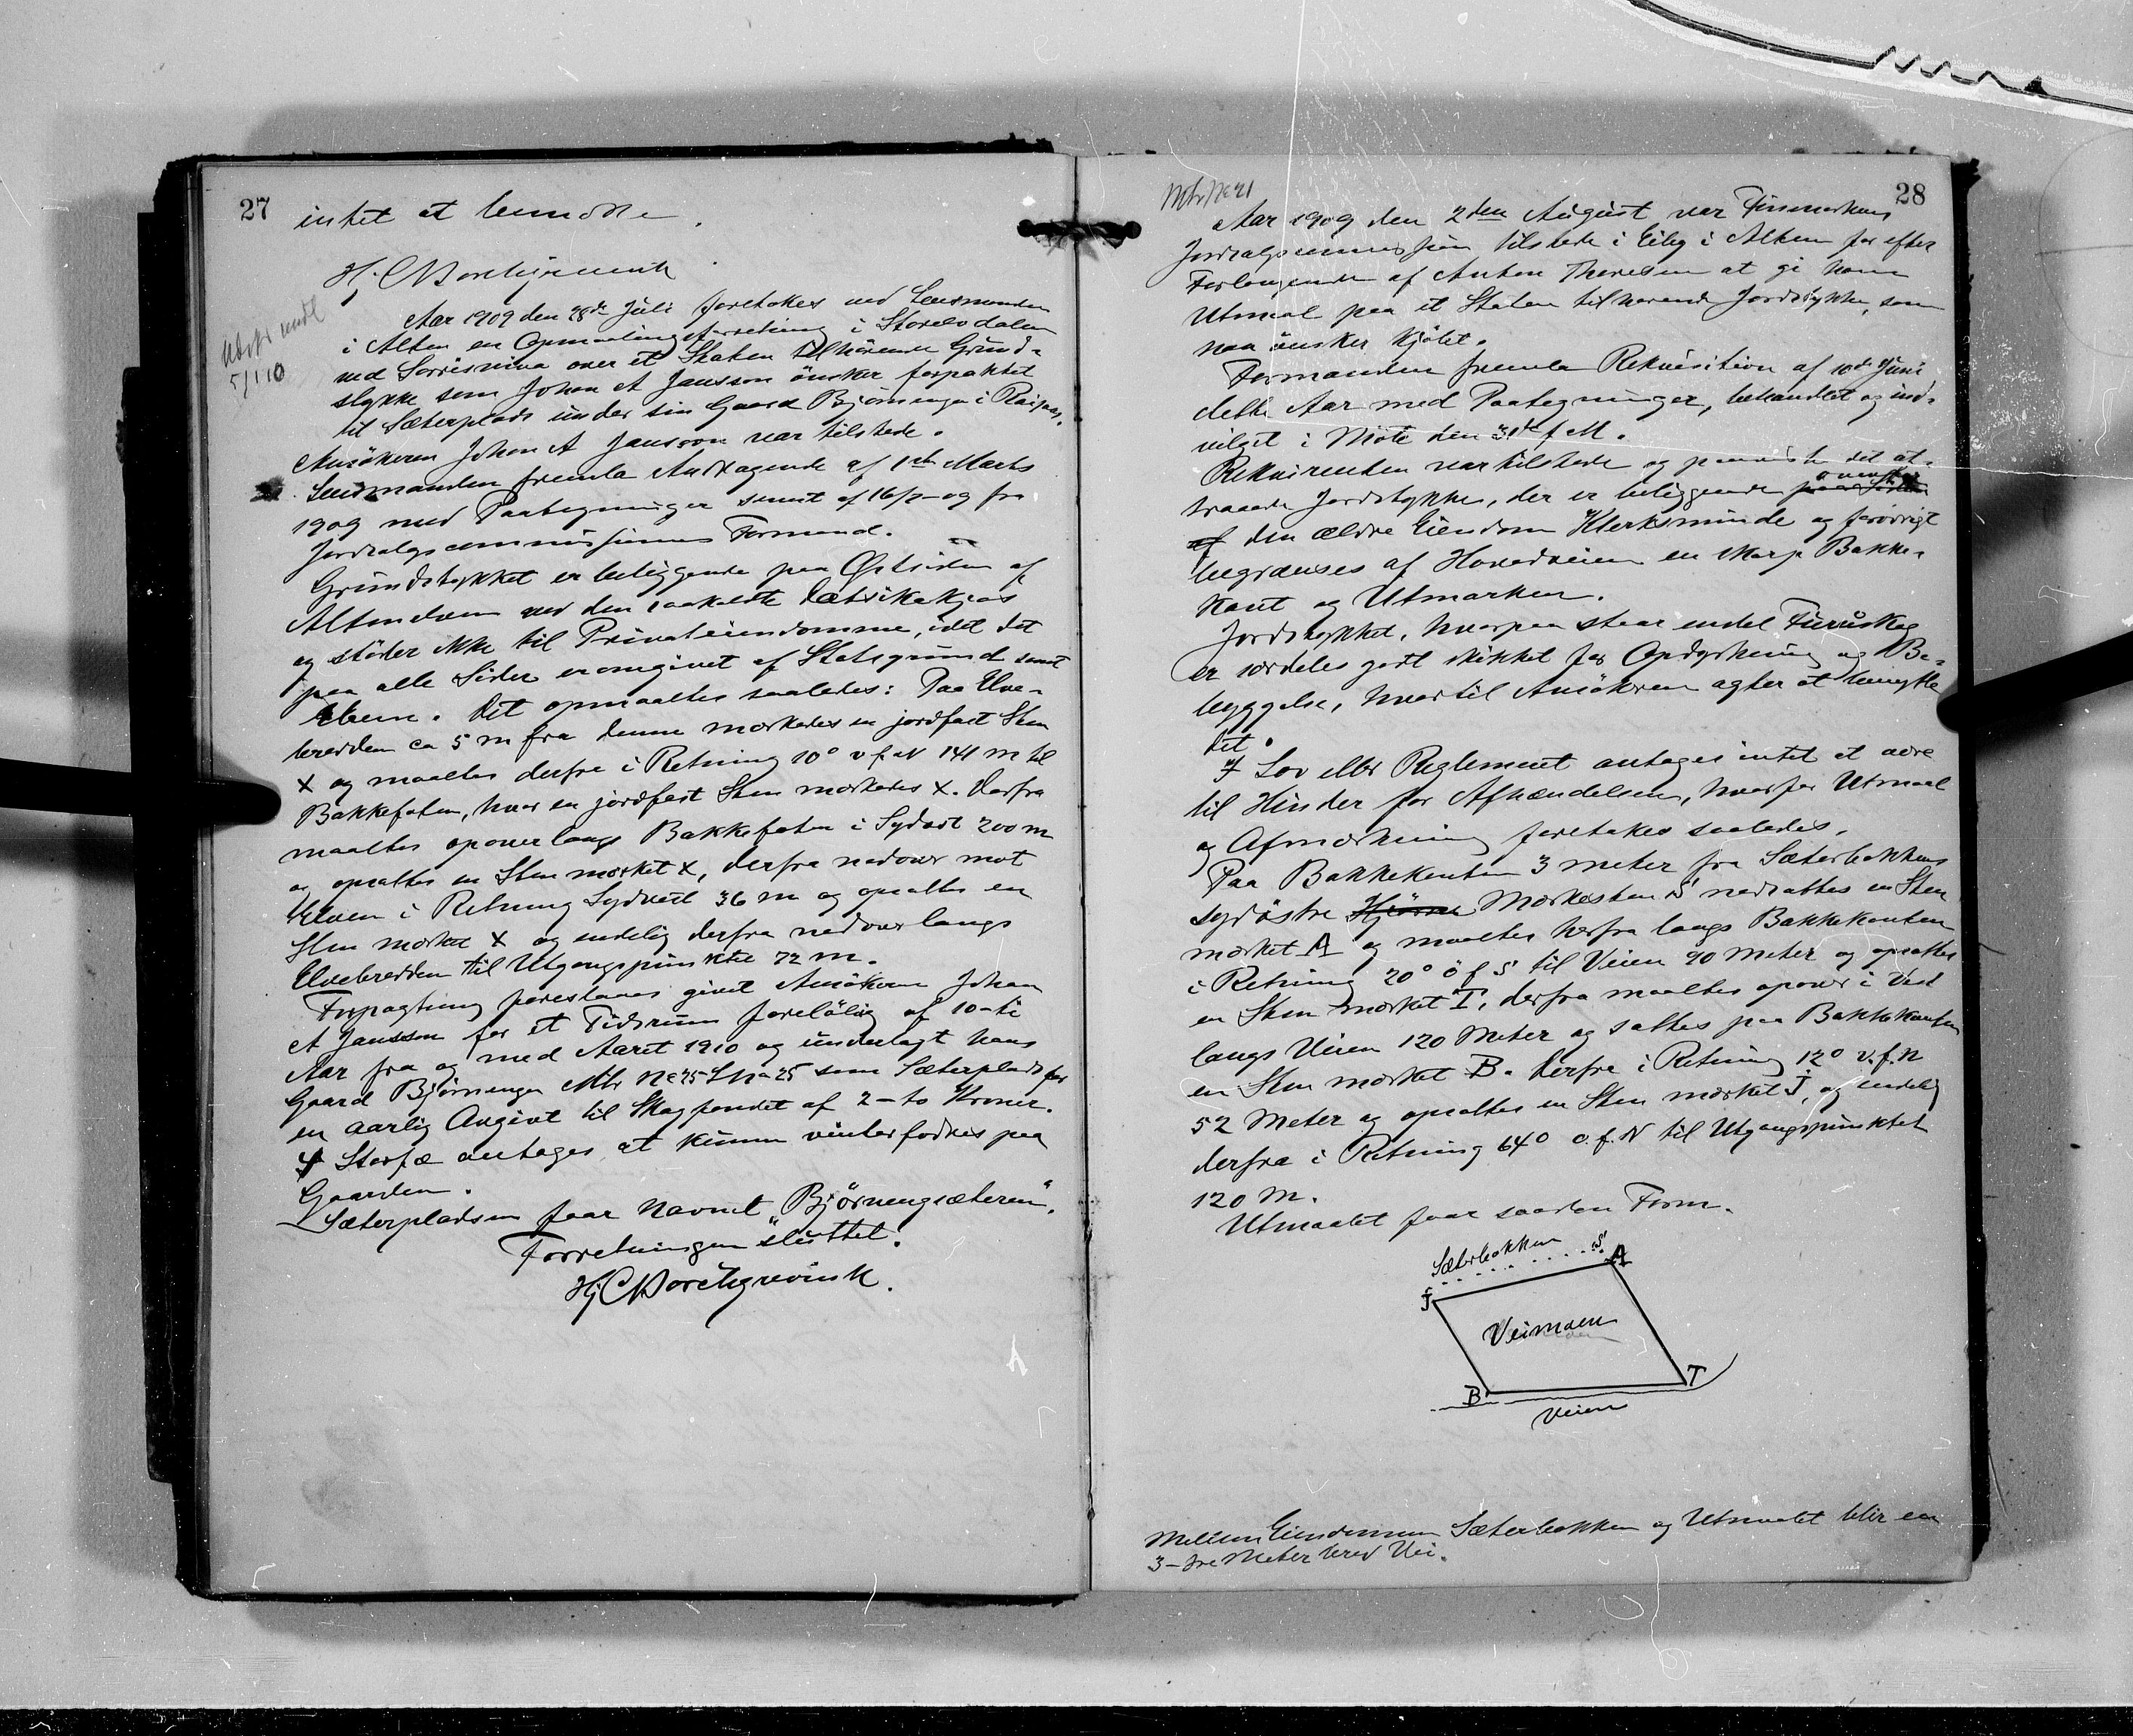 27
intet at bemærke.
Hj C Borchgrevink
Utskr sendt
5/1 10
Aar 1909 den 28de Juli foretokes ved Lensmanden
i Alten en Opmaalingsforretning i Storelvdalen
ved Sorrisniva over et Staten tilhörende Grund-
stykke som Johan A Jansson önsker forpaktet
til Sæterplads under sin Gaard Bjørnenga i Raipas.
Ansökeren Johan A Jansson var tilstede.
Lensmanden fremla Andragende af 1ste Marts
1909 med Paategninger samt af 16/7 og fra
Jordsalgscommissionens Formand.
Grundstykket er beliggende paa Østsiden af
Altenelven ved den saakaldte
og støder ikke til Privateiendomme, idet det
paa alle Sider er omgivet af Statsgrund samt
Elven. Det opmaaltes saaledes: Paa Elve-
bredden ca 5 m fra denne mærkedes en jordfast Sten
X og maaltes derfra i Retning 10° v f N 141 m til
Bakkefoten, hvor en jordfast Sten mærkedes X. Derfra
maaltes opover langs Bakkefoten i Sydost 200 m
og opsattes en Sten mærket X, derfra nedover mot
Elven i Retning Sydvest 36 m og opsattes en
Sten mærket X og endelig derfra nedover langs
Elvebredden til Utgangspunktet 72 m.
Forpagtning foreslaaes givet Ansökeren Johan
A Jansson for et Tidsrum foreløbig af 10-ti
Aar fra og med Aaret 1910 og underlagt hans
Gaard Bjørnenga Mtr No 25 L No 25 som Sæterplads for
en aarlig Avgivt til Skogfondet af 2 - to Kroner.
4 Storfæ antages at kunne vinterfødes paa
Gaarden.
Sæterpladsen faar Navnet "Bjørnengsæteren".
Forretningen sluttet.
Hj C Borchgrevink.
28
Aar 1909 den 2den August var Finmarkens
Jordsalgscommission tilstede i Elvebakken i Alten for efter
Forlangende af Anton Thoresen at gi ham
Utmaal paa et Staten tilhørende Jordstykke, som
han ønsker kjøbt.
Formanden fremla Rekvisition af 10de Juni
dette Aar med Paategninger, behandlet og ind-
vilget i Møte den 31te f M.
Rekvirenten var tilstede og paaviste det at-
traaede Jordstykke, der er beliggende ovenfor
den ældre Eiendom Klerksminde og forøvrigt
begrænses af Hovedveien en skarp Bakke-
kant og Utmarken.
Jordstykket, hvorpaa staar endel Furuskog
er særdeles godt skikket for Opdyrkning og Be-
byggelse, hvortil Ansökeren agter at benytte
det.
I Lov eller Reglement antages intet at være
til Hinder for Afhændelsen, hvorfor Utmaal
og Afmærkning foretokes saaledes.
Paa Bakkekanten 3 meter fra Sæterbakkens
sydöstre Hjörne Mærkesten S nedsattes en Sten
mærket A og maaltes herfra langs Bakkekanten
i Retning 20° ö f S til Veien 90 Meter og opsattes
en Sten mærket T, derfra maaltes opover i Vest
langs Veien 120 Meter og sattes paa Bakkekanten
en Sten mærket B. Derfra i Retning 12° v. f. N
52 Meter og opsattes en Sten mærket J, og endelig
derfra i Retning 64° o. f. N til Utgangspunktet
120 M.
Utmaalet faar saadan Form.
Sæterbakken S
A
J
Veimoen
B
T
Veien
Mellem Eiendommen Sæterbakken og Utmaalet blir en
3-tre Meter bred Vei.